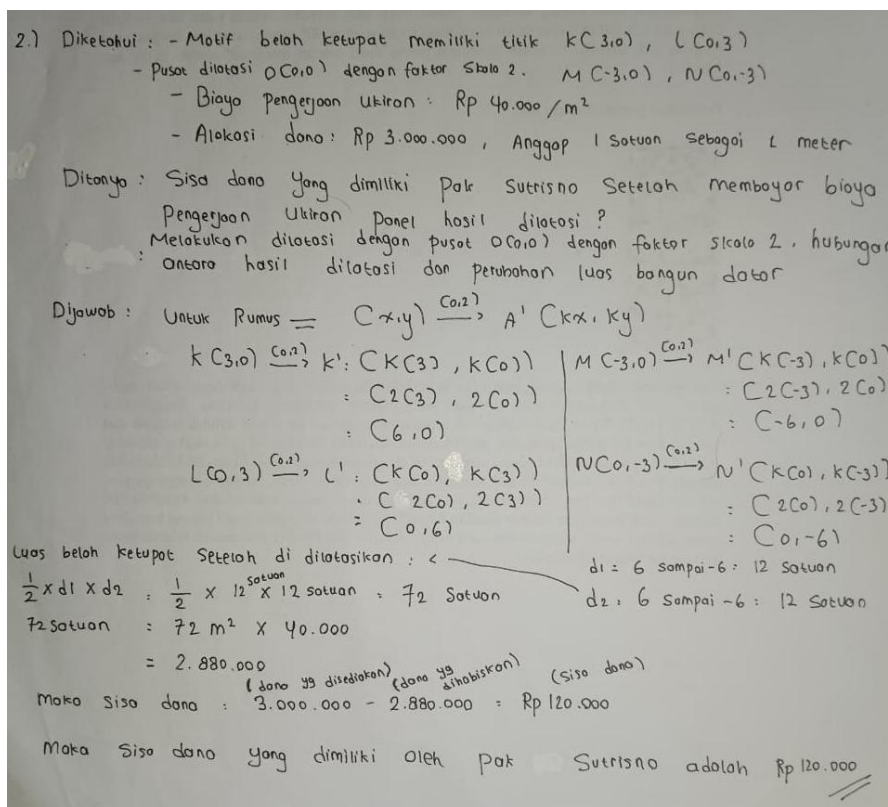 2.) Diketahui : - Motif belah ketupat memiliki titik K(3,0), L(0,3)
- Pusat dilatasi O(0,0) dengan faktor Skala 2. M(-3,0), N(0,-3)
- Biaya Pengerjaan Ukiran : Rp 40.000/m²
- Alokasi dana : Rp 3.000.000, Anggap 1 Satuan Sebagai 1 meter
Ditanya : Sisa dana Yang dimiliki Pak Sutrisno Setelah membayar biaya
Pengerjaan Ukiran Panel hasil dilatasi ?
: Melakukan dilatasi dengan pusat O(0,0) dengan faktor skala 2, hubungan
antara hasil dilatasi dan perubahan luas bangun datar
Dijawab : Untuk Rumus = (x,y) (0,2)→ A' (kx, ky)
K(3,0) (0,2)→ K' : (K(3), k(0))
: (2(3), 2(0))
: (6,0)
L(0,3) (0,2)→ L' : (k(0), k(3))
: (2(0), 2(3))
= (0,6)
M(-3,0) (0,2)→ M'(K(-3), k(0))
: (2(-3), 2(0)
: (-6,0)
N(0,-3) (0,2)→ N'(K(0), k(-3))
: (2(0), 2(-3)
: (0,-6)
Luas belah ketupat Setelah di dilatasikan : <
d1 = 6 sampai -6 : 12 Satuan
d2 : 6 Sampai -6 : 12 Satuan
1/2 x d1 x d2 : 1/2 x 12 satuan x 12 satuan : 72 Satuan
72 satuan : 72 m² x 40.000
= 2.880.000
(dana yg disediakan) (dana yg dihabiskan) (sisa dana)
Maka Sisa dana : 3.000.000 - 2.880.000 = Rp 120.000
Maka Sisa dana yang dimiliki oleh Pak Sutrisno adalah Rp 120.000